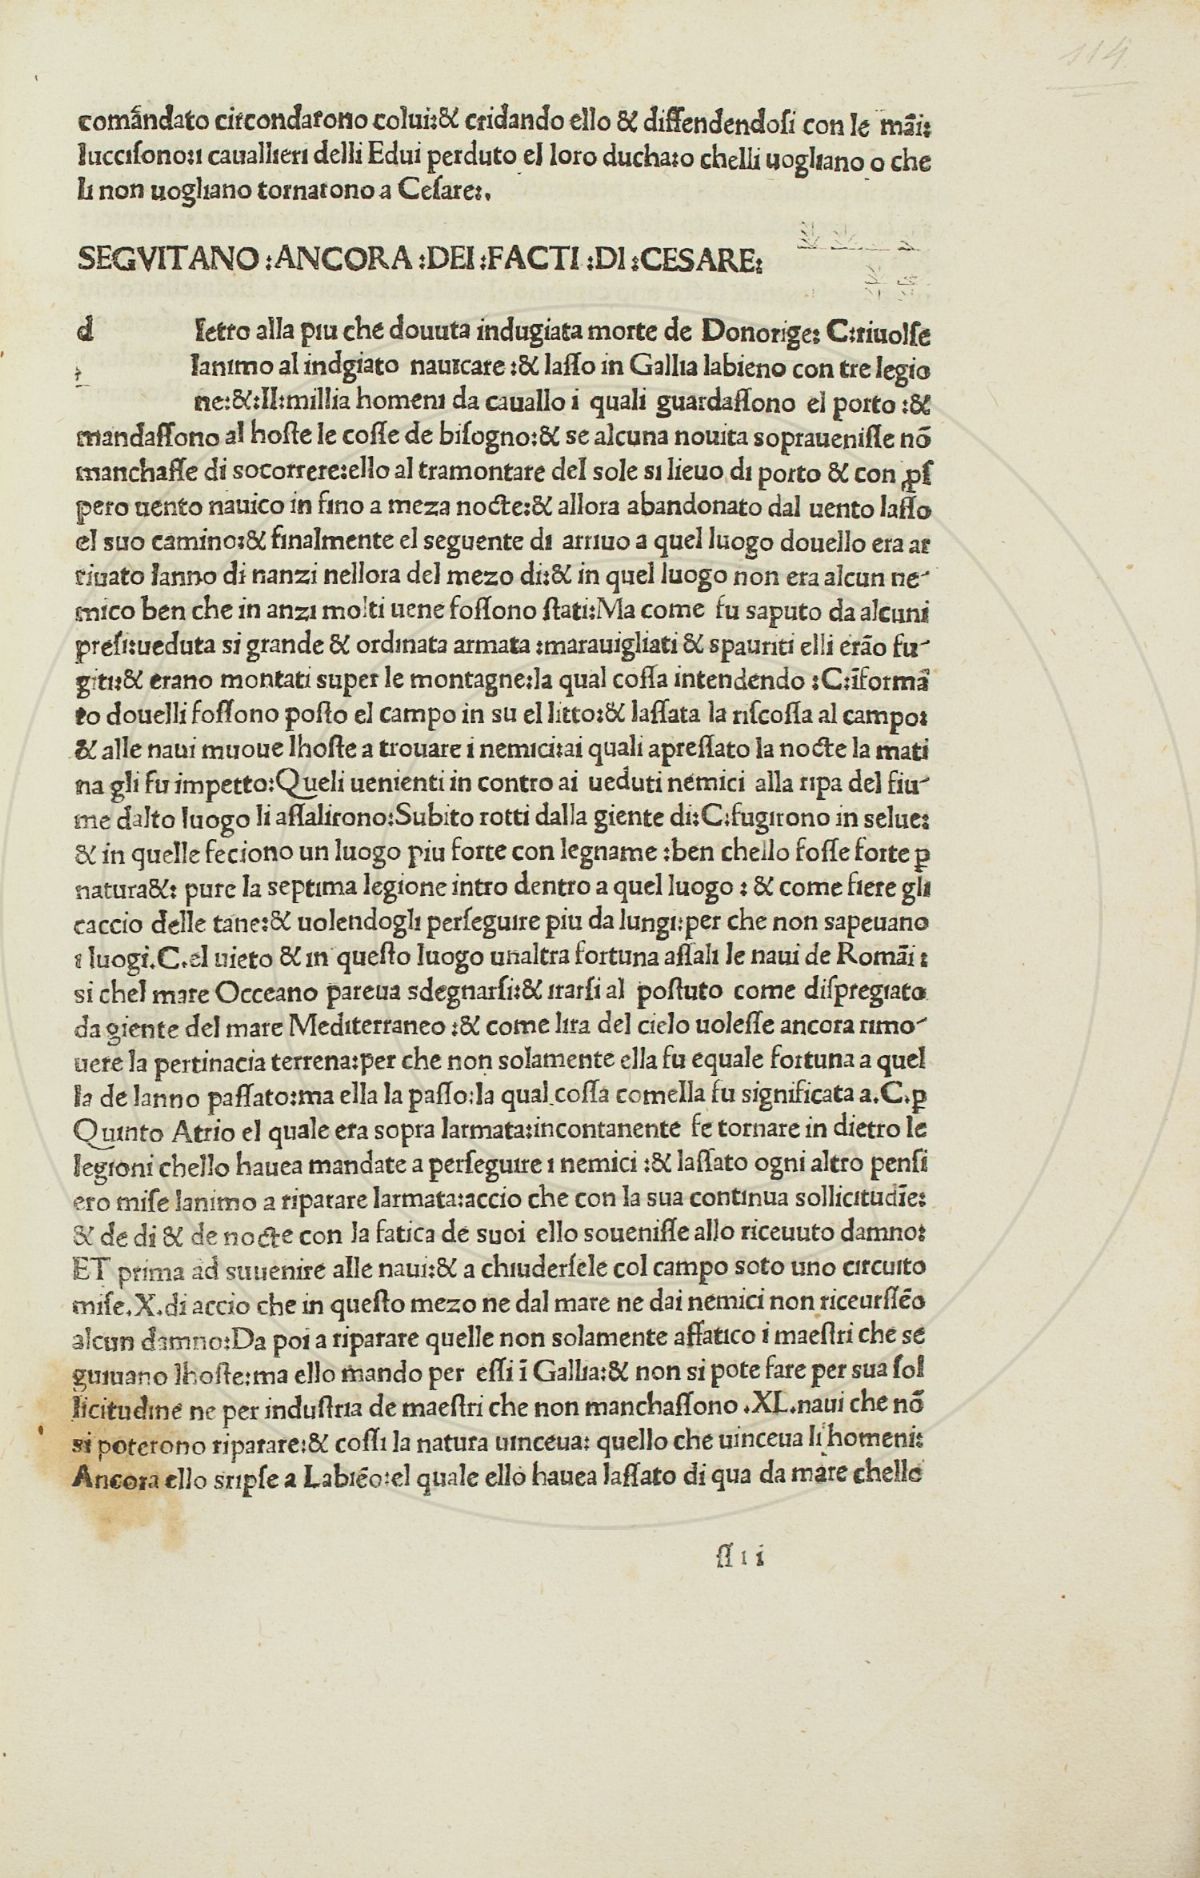 114
comãndato circondarono colui:& cridando ello & diffendendosi con le mãi:
luccisono:i cauallieri delli Edui perduto el loro ducha:o chelli uogliano o che
li non uogliano tornarono a Cesare:.
SEGVITANO :ANCORA :DEI :FACTI :DI :CESARE:
d ietro alla piu che douuta indugiata morte de Donorige: C:riuolse
lanimo al indgiato nauicare :& lasso in Gallia labieno con tre legio
ne:&:II:millia homeni da cauallo i quali guardassono el porto :&
mandassono al hoste le cosse de bisogno:& se alcuna nouita soprauenisse nõ
manchasse di socorrere:ello al tramontare del sole si lieuo di porto & con ꝓs
pero uento nauico in fino a meza nocte:& allora abandonato dal uento lasso
el suo camino:& finalmente el seguente di arriuo a quel luogo douello era ar
riuato lanno di nanzi nellora del mezo di:& in quel luogo non era alcun ne-
mico ben che in anzi molti uene fossono stati:Ma come fu saputo da alcuni
presi:ueduta si grande & ordinata armata :marauigliati & spauriti elli erão fu-
giti:& erano montati super le montagne:la qual cossa intendendo :C:ĩformã
to douelli fossono posto el campo in su el litto:& lassata la riscossa al campo:
& alle naui muoue lhoste a trouare i nemici:ai quali apressato la nocte la mati
na gli fu impetto:Queli uenienti in contro ai ueduti nemici alla ripa del fiu-
me dalto luogo li assalirono:Subito rotti dalla giente di:C:fugirono in selue:
& in quelle feciono un luogo piu forte con legname :ben chello fosse forte ꝑ
natura&: pure la septima legione intro dentro a quel luogo : & come fiere gli
caccio delle tane:& uolendogli perseguire piu da lungi:per che non sapeuano
i luogi.C.el uieto & in questo luogo unaltra fortuna assali le naui de Romãi :
si chel mare Occeano pareua sdegnarsi:& irarsi al postuto come dispregiato
da giente del mare Mediterraneo :& come lira del cielo uolesse ancora rimo-
uere la pertinacia terrena:per che non solamente ella fu equale fortuna a quel
la de lanno passato:ma ella la passo:la qual cossa comella fu significata a.C.ꝑ
Quinto Atrio el quale era sopra larmata:incontanente fe tornare in dietro le
legioni chello hauea mandate a perseguire i nemici :& lassato ogni altro pensi
ero mise lanimo a riparare larmata:accio che con la sua continua sollicitudĩe:
& de di & de nocte con la fatica de suoi ello souenisse allo riceuuto damno:
ET prima ad suuenire alle naui:& a chiudersele col campo soto uno circuito
mise.X.di accio che in questo mezo ne dal mare ne dai nemici non riceurssẽo
alcun damno:Da poi a riparare quelle non solamente affatico i maestri che se
guiuano lhoste:ma ello mando per essi ĩ Gallia:& non si pote fare per sua sol
licitudine ne per industria de maestri che non manchassono .XL.naui che nõ
si poterono riparare:& cossi la natura uinceua: quello che uinceua li homeni:
Ancora ello sripse a Labiẽo:el quale ello hauea lassato di qua da mare chello
ss i i